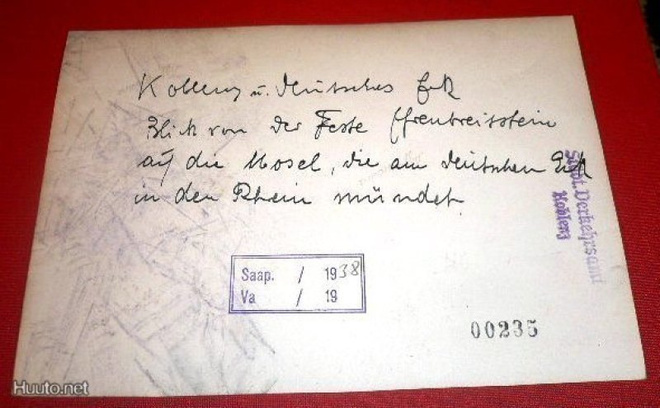 Koblenz u. Deutsches Eck
Blick von der Feste Ehrenbreitstein
auf die Mosel, die am deutschen Eck
in den Rhein mündet.
Städt. Verkehrsamt
Koblenz
Saap. / 1938
Va / 19
00235
Huuto.net